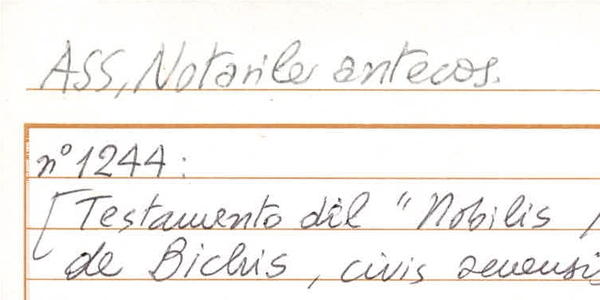 ASS, Notarile antecos.
n° 1244:
[Testamento del "Nobilis
de Bichis, civis senensis